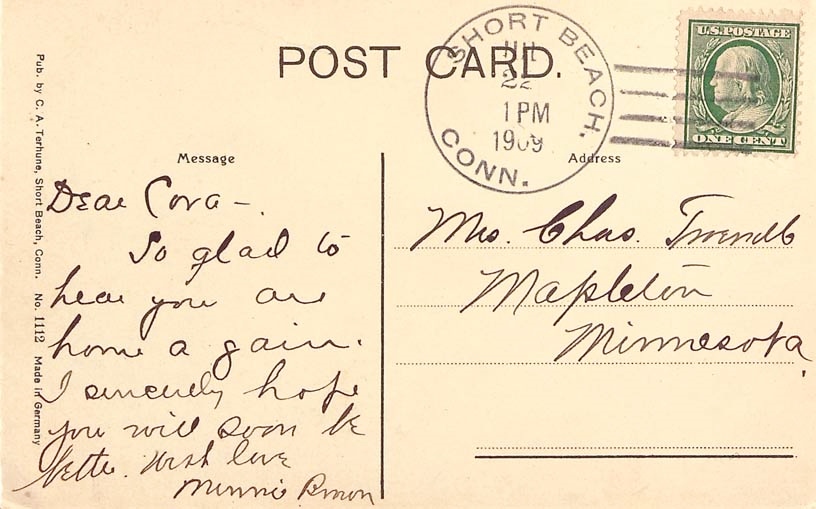 POST CARD.
SHORT BEACH,
JUL
22
1 PM
1909
CONN.
U.S. POSTAGE
ONE CENT
Pub. by C. A. Terhune, Short Beach, Conn. No. 1112 Made in Germany
Message
Dear Cora -
So glad to
hear you are
home a gain.
I sincerely hope
you will soon be
better. With love
Minnie
Address
Mrs. Chas.
Mapleton
Minnesota,